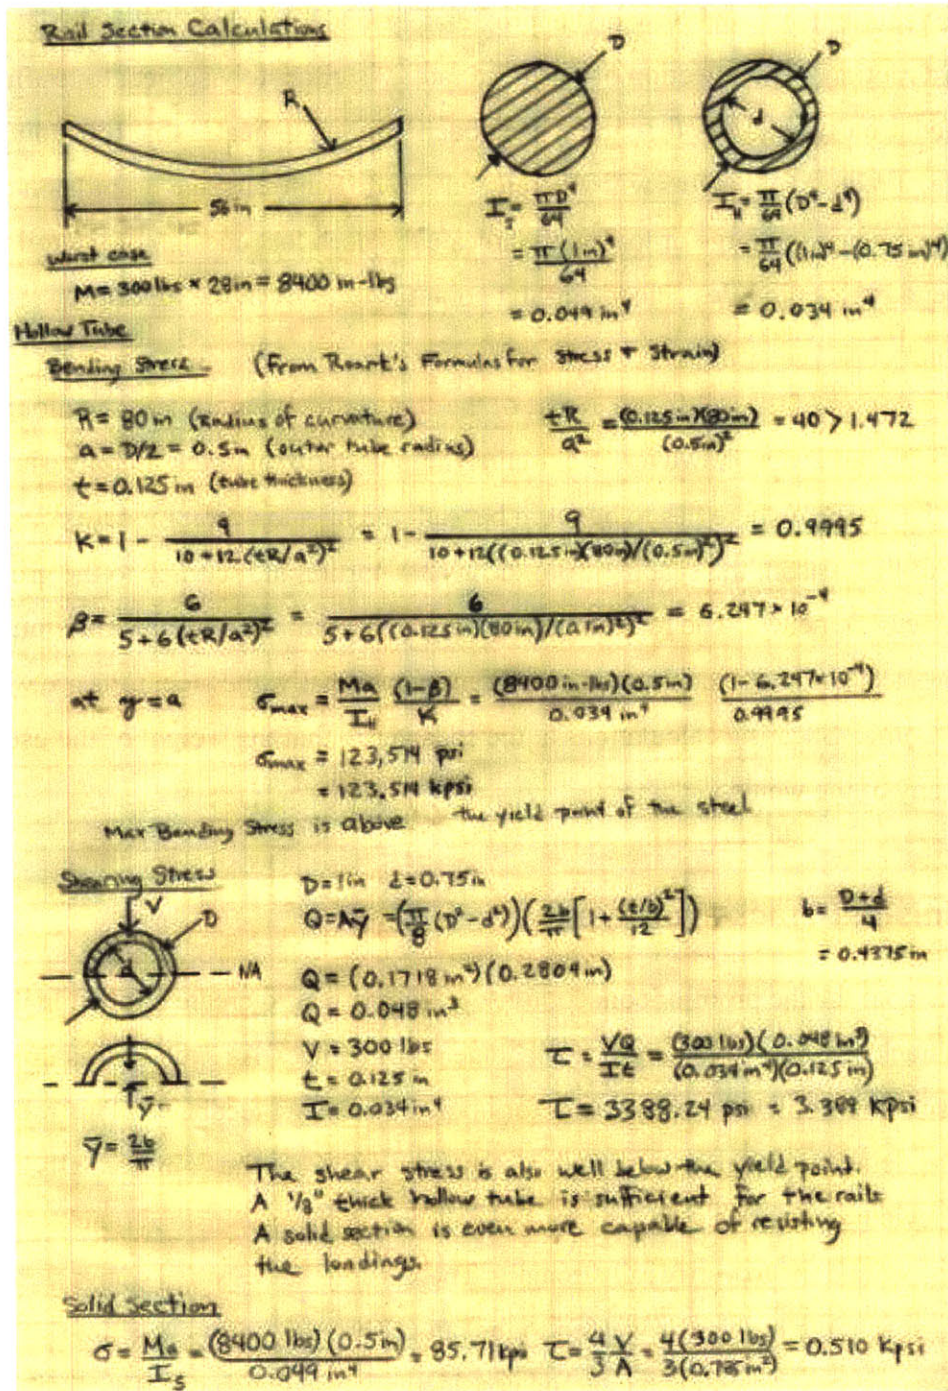 Rail Section Calculations
D
D
R
d
56 in
I_s = πD⁴/64
I_H = π/64 (D⁴-d⁴)
worst case
= π(1in)⁴/64
= π/64 ((1in)⁴-(0.75in)⁴)
M = 300 lbs × 28in = 8400 in-lbs
= 0.049 in⁴
= 0.034 in⁴
Hollow Tube
Bending Stress (From Roark's Formulas for Stress + Strain)
R = 80 in (radius of curvature)
tR/a² = (0.125in)(80in)/(0.5in)² = 40 > 1.472
a = D/2 = 0.5in (outer tube radius)
t = 0.125 in (tube thickness)
K = 1 - 9/(10+12(tR/a²)²) = 1 - 9/(10+12((0.125in)(80in)/(0.5in)²)²) = 0.9995
β = 6/(5+6(tR/a²)²) = 6/(5+6((0.125in)(80in)/(0.1in)²)²) = 6.247×10⁻⁴
at y=a σmax = Ma/I_H (1-β)/K = (8400 in-lbs)(0.5in)/0.034 in⁴ (1-6.247×10⁻⁴)/0.9995
σmax = 123,514 psi
= 123.514 kpsi
Max Bending Stress is above the yield point of the steel
Shearing Stress
D=1in d=0.75in
V
D
d
NA
Q=Aȳ = (π/8 (D²-d²))(2b/π [1+(t/b)²/12])
b = D+d/4
= 0.4375in
Q = (0.1718 in²)(0.2809in)
Q = 0.048 in³
V = 300 lbs
t = 0.125 in
I = 0.034in⁴
τ = VQ/It = (300 lbs)(0.048 in³)/(0.034in⁴)(0.125in)
τ = 3388.24 psi = 3.389 kpsi
ȳ
ȳ = 2b/π
The shear stress is also well below the yield point.
A 1/8" thick hollow tube is sufficient for the rails
A solid section is even more capable of resisting
the loadings.
Solid Section
σ = Ma/I_s = (8400 lbs)(0.5in)/0.049 in⁴ = 85.71 kpsi τ = 4/3 V/A = 4(300 lbs)/3(0.785in²) = 0.510 kpsi